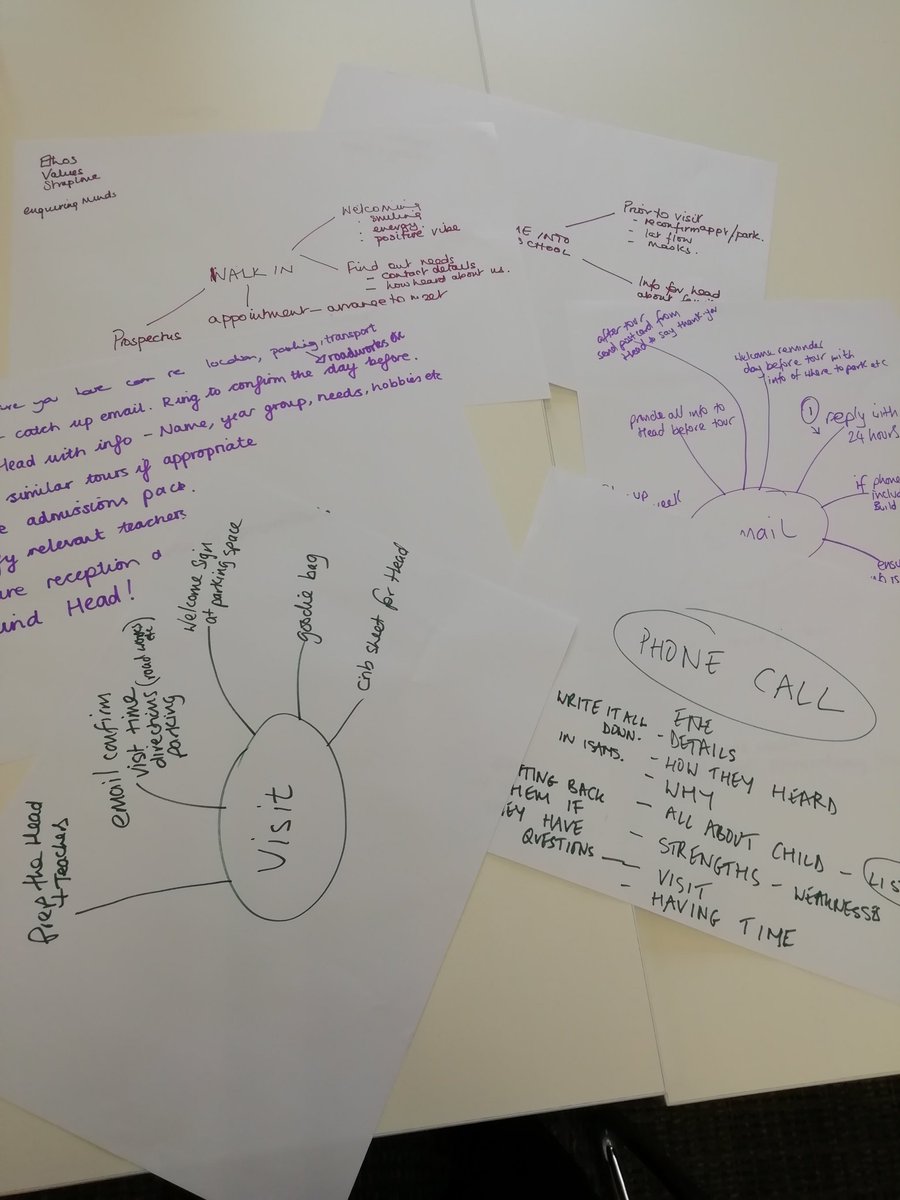 Ethos
Values
Strapline
enquiring minds
WALK IN
Welcoming
smiling
energy
positive vibe
Find out needs
- contact details
- how heard about us.
appointment - arrange to meet
Prospectus
INTO
SCHOOL
Prior to visit
- reconfirm appt/park.
- lat flow
- masks.
Info for head
about
you have com re location, parking, transport
roadworks etc
catch up email. Ring to confirm the day before.
Head with info - Name, year group, needs, hobbies etc
similar tours if appropriate
admissions pack.
relevant teachers
reception a
Head!
after tour,
send postcard from
Head to say thank you
Welcome reminder
day before tour with
info of where to park etc
provide all info to
Head before tour
1 reply with
24 hours
if phone
includ
Build
up
mail
ensu
Visit
Prep the Head
+ Teachers
email confirm
visit time
directions (road works etc)
parking
Welcome sign
at parking space
goodie bag
crib sheet for Head
PHONE CALL
WRITE IT ALL
DOWN.
IN ISAMS.
- DETAILS
- HOW THEY HEARD
- WHY
- ALL ABOUT CHILD - LIS
- STRENGTHS - WEAKNESSES
- VISIT
- HAVING TIME
BACK
IF
HAVE
QUESTIONS